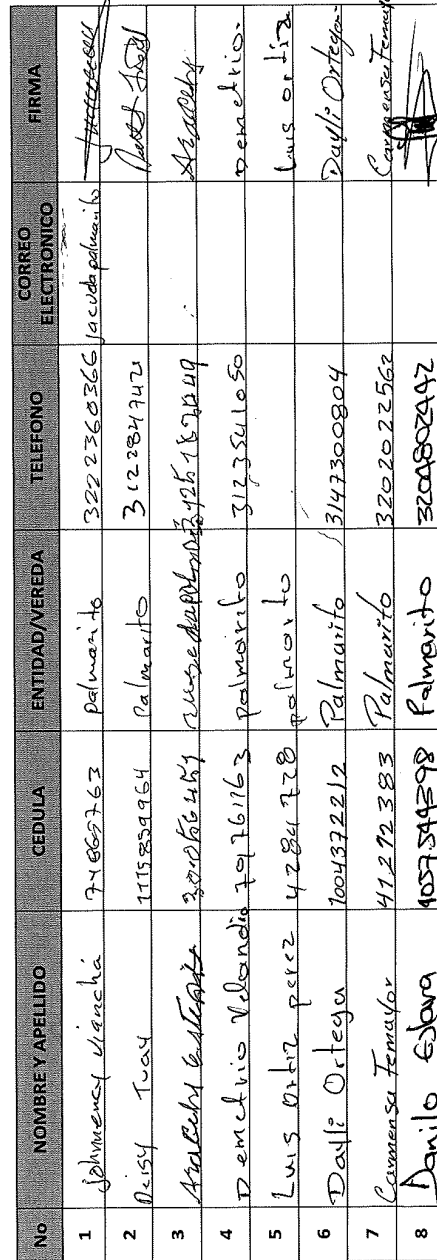 No NOMBRE Y APELLIDO CEDULA ENTIDAD/VEREDA TELEFONO CORREO ELECTRONICO FIRMA
1 Johnmency Viancha 74865763 palmarito 3222360366 jacudapalmarito
2 Deisy Tuay 1115859964 Palmarito 3122847421
3 Aracely Aracely
4 Demetrio Velandia palmarito 3123541050 Demetrio
5 Luis ortiz perez 4284728 palmarito Luis ortiz
6 Dayli Ortega 1004372212 Palmarito 3147300804 Dayli Ortega
7 Carmensa Temayor 41292383 Palmarito 3202022563 Carmensa Temayor
8 Danilo Eslava 1057544398 Palmarito 3204802442